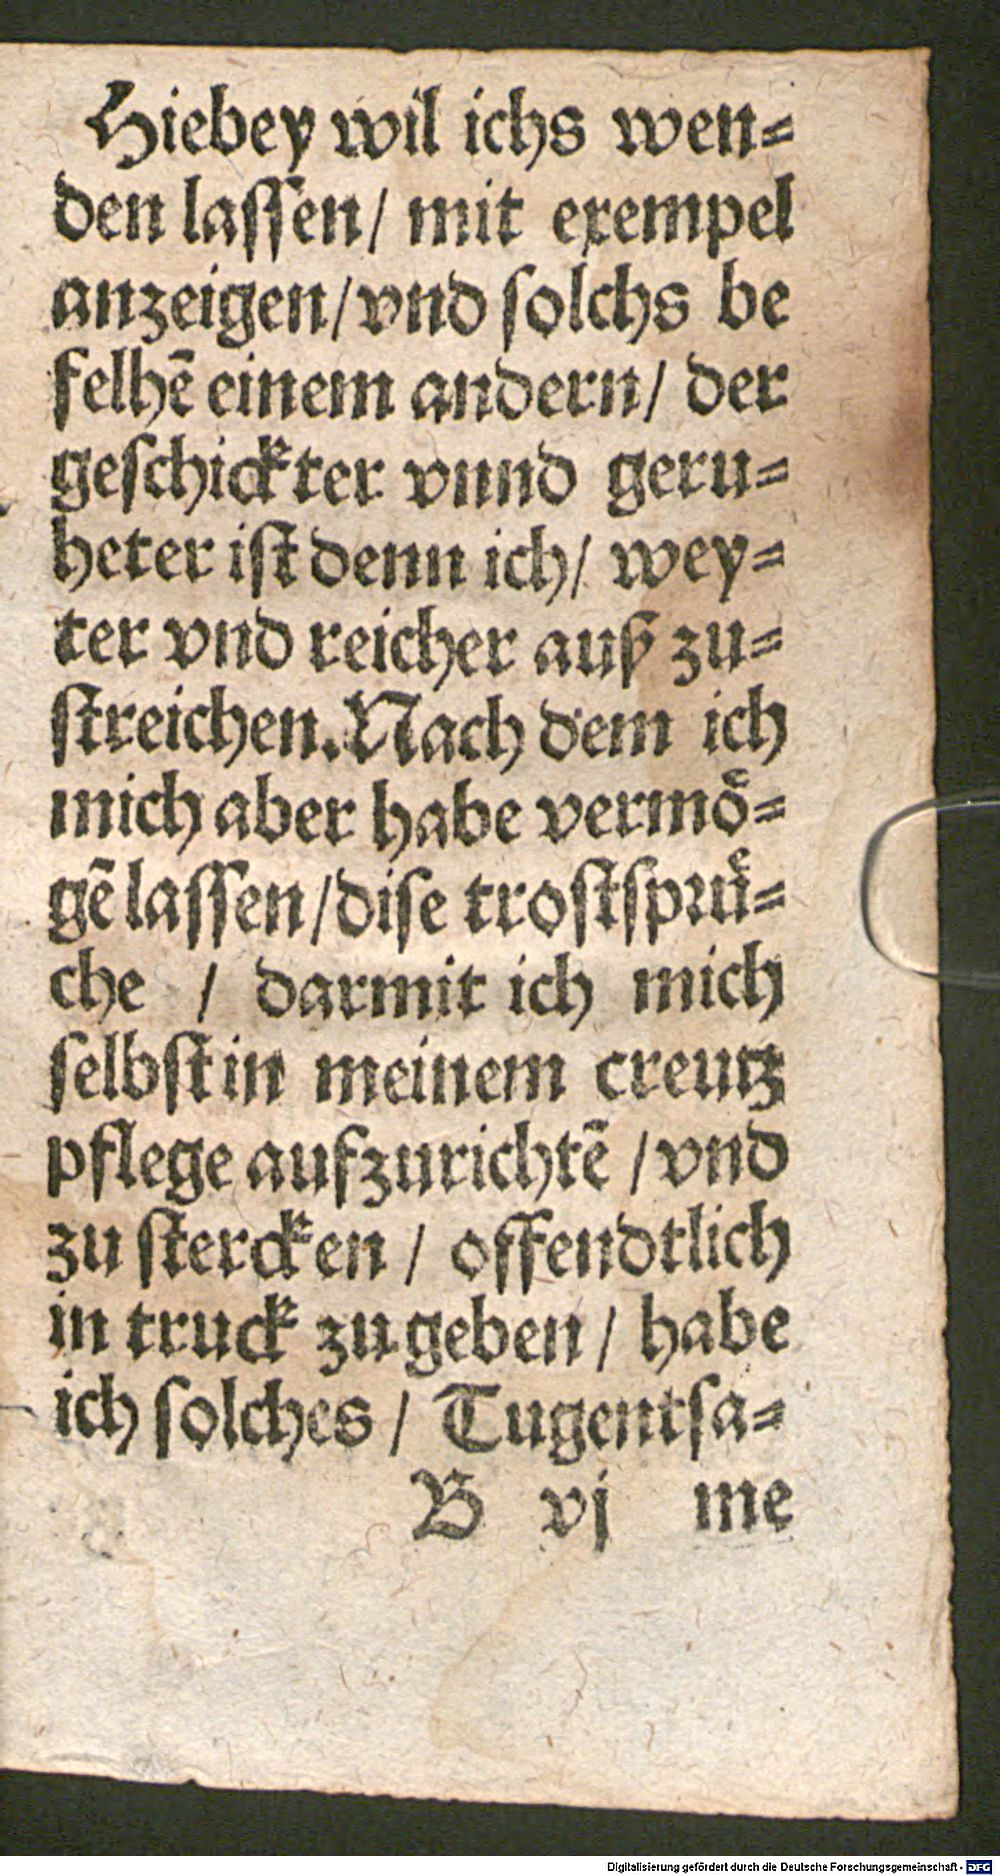 Hiebey wil ichs wen⸗
den laſſen/ mit exempel
anzeigen/vnd ſolchs be
felhẽ einem andern/ der
geſchickter vnnd geru⸗
heter iſt denn ich/ wey⸗
ter vnd reicher auß zu⸗
ſtreichen. Nach dem ich
mich aber habe vermoͤ⸗
gẽ laſſen/diſe troſtſpruͤ⸗
che / darmit ich mich
ſelbſt in meinem creutz
pflege aufzurichtẽ /vnd
zu ſtercken / offendtlich
in truck zu geben / habe
ich ſolches / Tugentſa⸗
B vj me
Digitalisierung gefördert durch die Deutsche Forschungsgemeinschaft - DFG